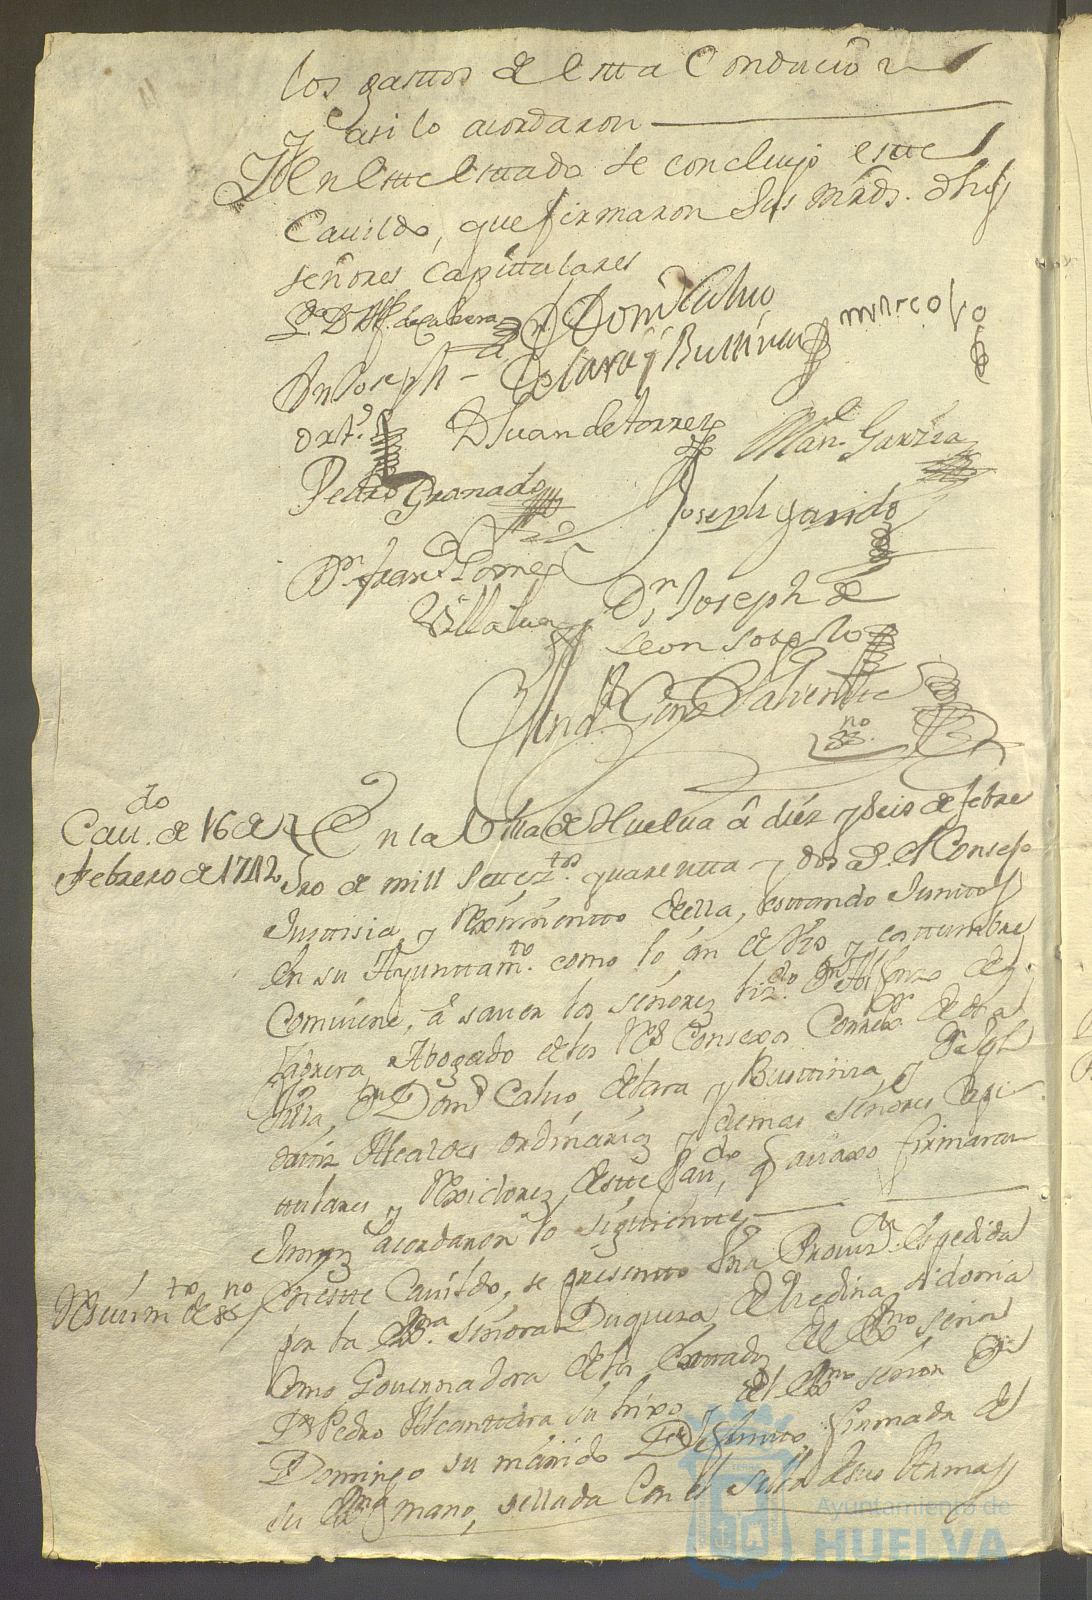 los gasttos de estta Conducion
asi lo acordaron
Y en estte esttado se concluyo estte
Cauildo, que firmaron sus mrds. dhos
señores capittulares
Ldo. Dn. Alf. de Cabrera
Dn Domo. Caluo
de Lara y Busttinza
marcos
Dn Joseph
ortz.
D Juan de torres
Manl. Garzia
Pedro Granado
Joseph garrido
Dn. Franco. Gomez
Villalua
Dn. Joseph de
Leon Sotelo
Andr. Gonz Valientte
sno.
Caudo. de 16 de
febrero de 1742
En la Villa de Huelua â diez y seis de febre
ro de mill Settezttos. quarentta y dos as. el Consejo
Justtisia, y Reximientto della, esttando Junttos
en su Ayunttamto. como lo an de Vso y costtumbre
Combiene, â sauer los señorez Lizdo. Dn Alfonzo de
Cabrera Abogado de los Rs Consexos Correxor. de dha
Villa, Dn Domo Caluo de Lara y Busttinza, y Dn Jph
ortiz Alcaldes ordinarioz y demas señores capi
ttulares y Rexidorez, destte Caudo, q auaxo firmaran
Junttos acordaron lo siguientte
Reciuimto de sno
En estte Cauildo, se presentto Vna Prouizon. espedida
por la Exma. señora Duquesa de Medina Sidonia
Como Gouernadora de los Esttados del Exmo señor
Dn Pedro Alcanttara su hixo y del Exmo señor Dn
Domingo su marido Difuntto, firmada de
su Exma mano, sellada Con el Sello de sus Armas
Ayuntamiento de
HUELVA